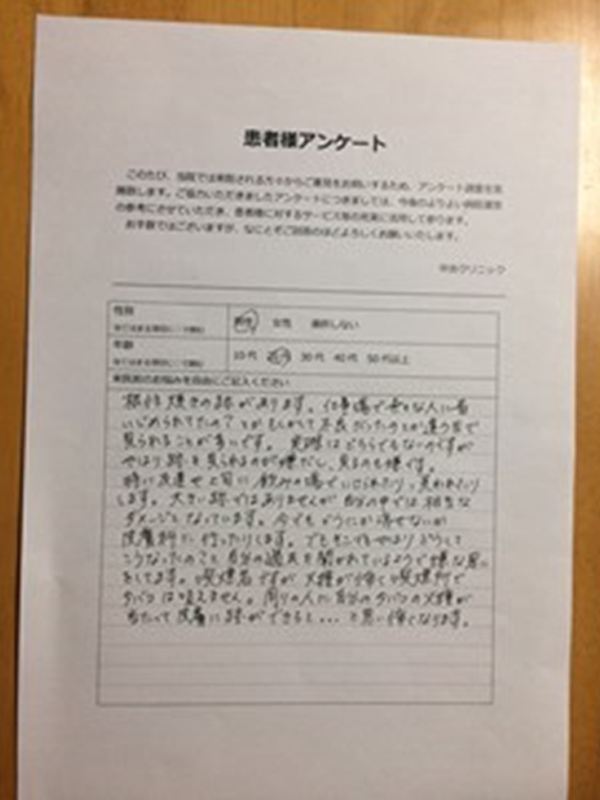 患者様アンケート
このたび、当院では来院される方々からご意見をお伺いするため、アンケート調査を実
施致します。ご協力いただきましたアンケートにつきましては、今後のよりよい病院運営
の参考にさせていただき、患者様に対するサービス等の充実に活用して参ります。
お手数ではございますが、なにとぞご回答のほどよろしくお願いいたします。
クリニック
性別
男性 女性 選択しない
年齢
10代 20代 30代 40代 50代以上
来院前のお悩みを自由にご記入ください
根性焼きの跡があります。仕事場で色々な人に昔
いじめられてたの？とか もしかして不良だったの？とか違う目で
見られることが多いです。実際はどちらでもないのですが
やはり跡を見られるのが嫌だし、見るのも嫌です。
特に 上司に飲みの場でいじられたり、笑われたり
します。大きい跡ではありませんが自分の中では相当な
ダメージとなっています。今でもどうにか消せないか
皮膚科に行ったりします。でもそこでもやはりどうして
こうなったのこと 自分の過去を聞かれているようで嫌な思い
をしてます。喫煙者ですが火種が怖く喫煙所で
タバコは吸えません。周りの人に自分のタバコの火種が
当たって皮膚に跡ができると...と思い怖くなります。